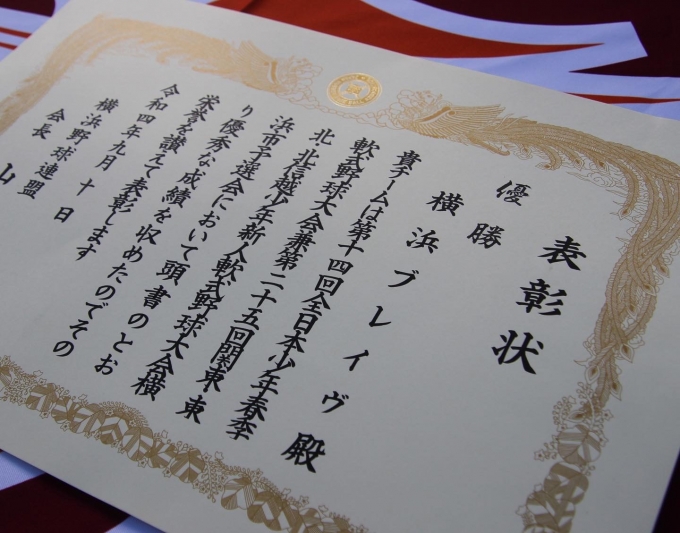 表彰状
優勝
横浜ブレイヴ殿
貴チームは第十四回全日本少年春季
軟式野球大会兼第二十五回関東・東
北・北信越少年新人軟式野球大会横
浜市予選会において頭書のとお
り優秀な成績を収めたのでその
栄誉を讃えて表彰します
令和四年九月十日
横浜野球連盟
会長 山